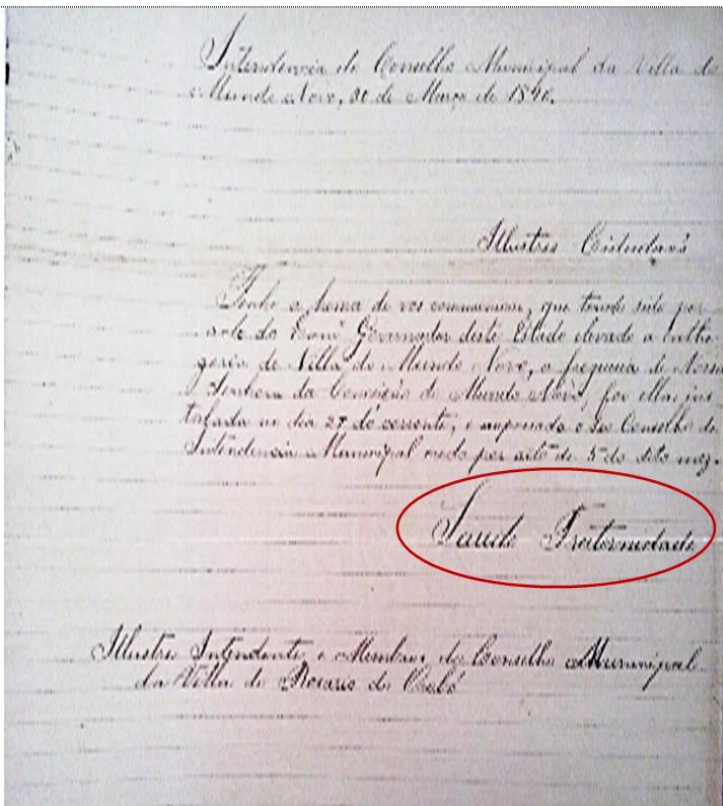 Intendencia do Conselho Municipal da Villa do
Mundo Novo, de Março de 1890.
Illustres Cidadaõs
Tenho a honra de vos communicar, que tendo sido por
acto do Governador deste Estado elevado a cathe
goria de Villa do Mundo Novo, a freguezia de Nossa
Senhora da Conceição do Mundo Novo, foi ella ins
tallada no dia 27 do corrente, e empossado o seo Conselho de
Intendencia Municipal por acto de 5 do dito mez.
Saude Fraternidade
Illustres Intendente e Membros do Conselho Municipal
da Villa do Rosario do Orobó